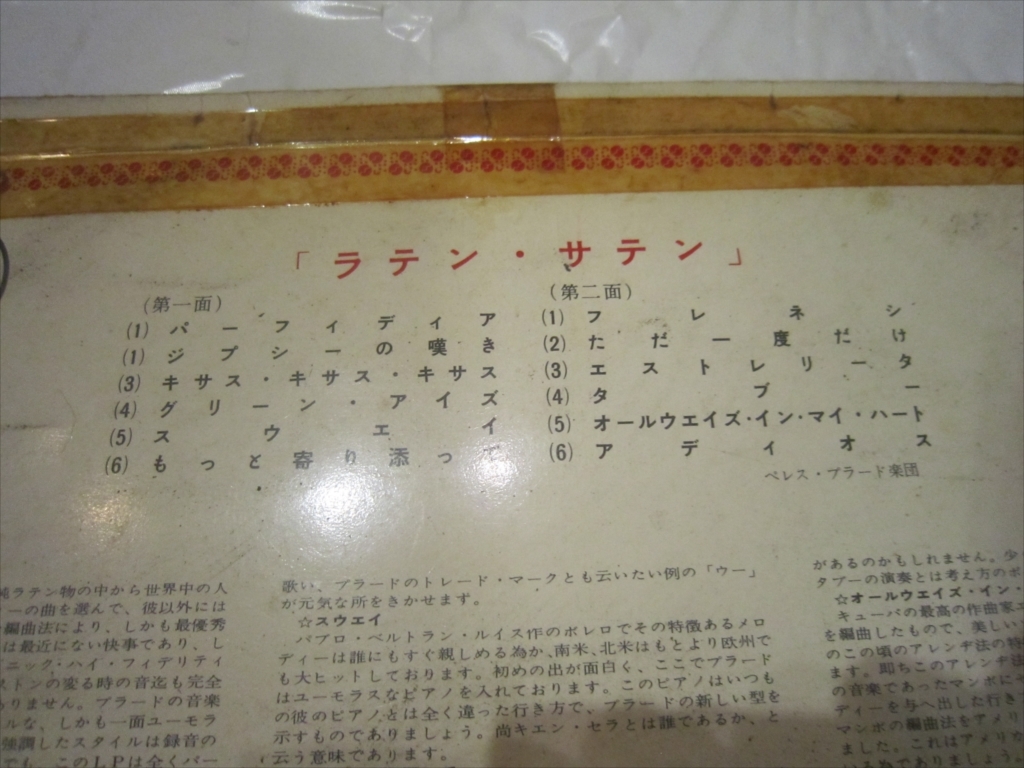 「ラテン・サテン」
(第一面)
(1) パーフィディア
(1) ジプシーの嘆き
(3) キサス・キサス・キサス
(4) グリーン・アイズ
(5) スウエイ
(6) もっと寄り添って
(第二面)
(1) フレネシ
(2) ただ一度だけ
(3) エストレリータ
(4) タブー
(5) オールウエイズ・イン・マイ・ハート
(6) アディオス
ペレス・プラード楽団
ラテン物の中から世界中の人
ーの曲を選んで、彼以外には
編曲法により、しかも最優秀
は最近にない快事であり、し
ニック・ハイ・フィデリティ
ストンの変る時の音迄も完全
ありません。プラードの音楽
ルな、しかも一面ユーモラ
強調したスタイルは録音の
でも、このLPは全くパー
歌い、プラードのトレード・マークとも云いたい例の「ウー」
が元気な所をきかせます。
☆スウエイ
パブロ・ベルトラン・ルイス作のボレロでその特徴あるメロ
ディーは誰にもすぐ親しめる為か、南米、北米はもとより欧州で
も大ヒットしております。初めの出が面白く、ここでプラード
はユーモラスなピアノを入れております。このピアノはいつも
の彼のピアノとは全く違った行き方で、プラードの新しい型を
示すものでありましょう。尚キエン・セラとは誰であるか、と
云う意味であります。
があるのかもしれません。少
タブーの演奏とは考え方のポ
☆オールウエイズ・イン・
キューバの最高の作曲家エ
を編曲したもので、美しい
のこの頃のアレンヂ法の特
ます。即ちこのアレンヂ法
の音楽であったマンボにそ
ディーを与へ出した行き
マンボの編曲法をアメリ
ました。これはアメリカ
いる為でありましょう。